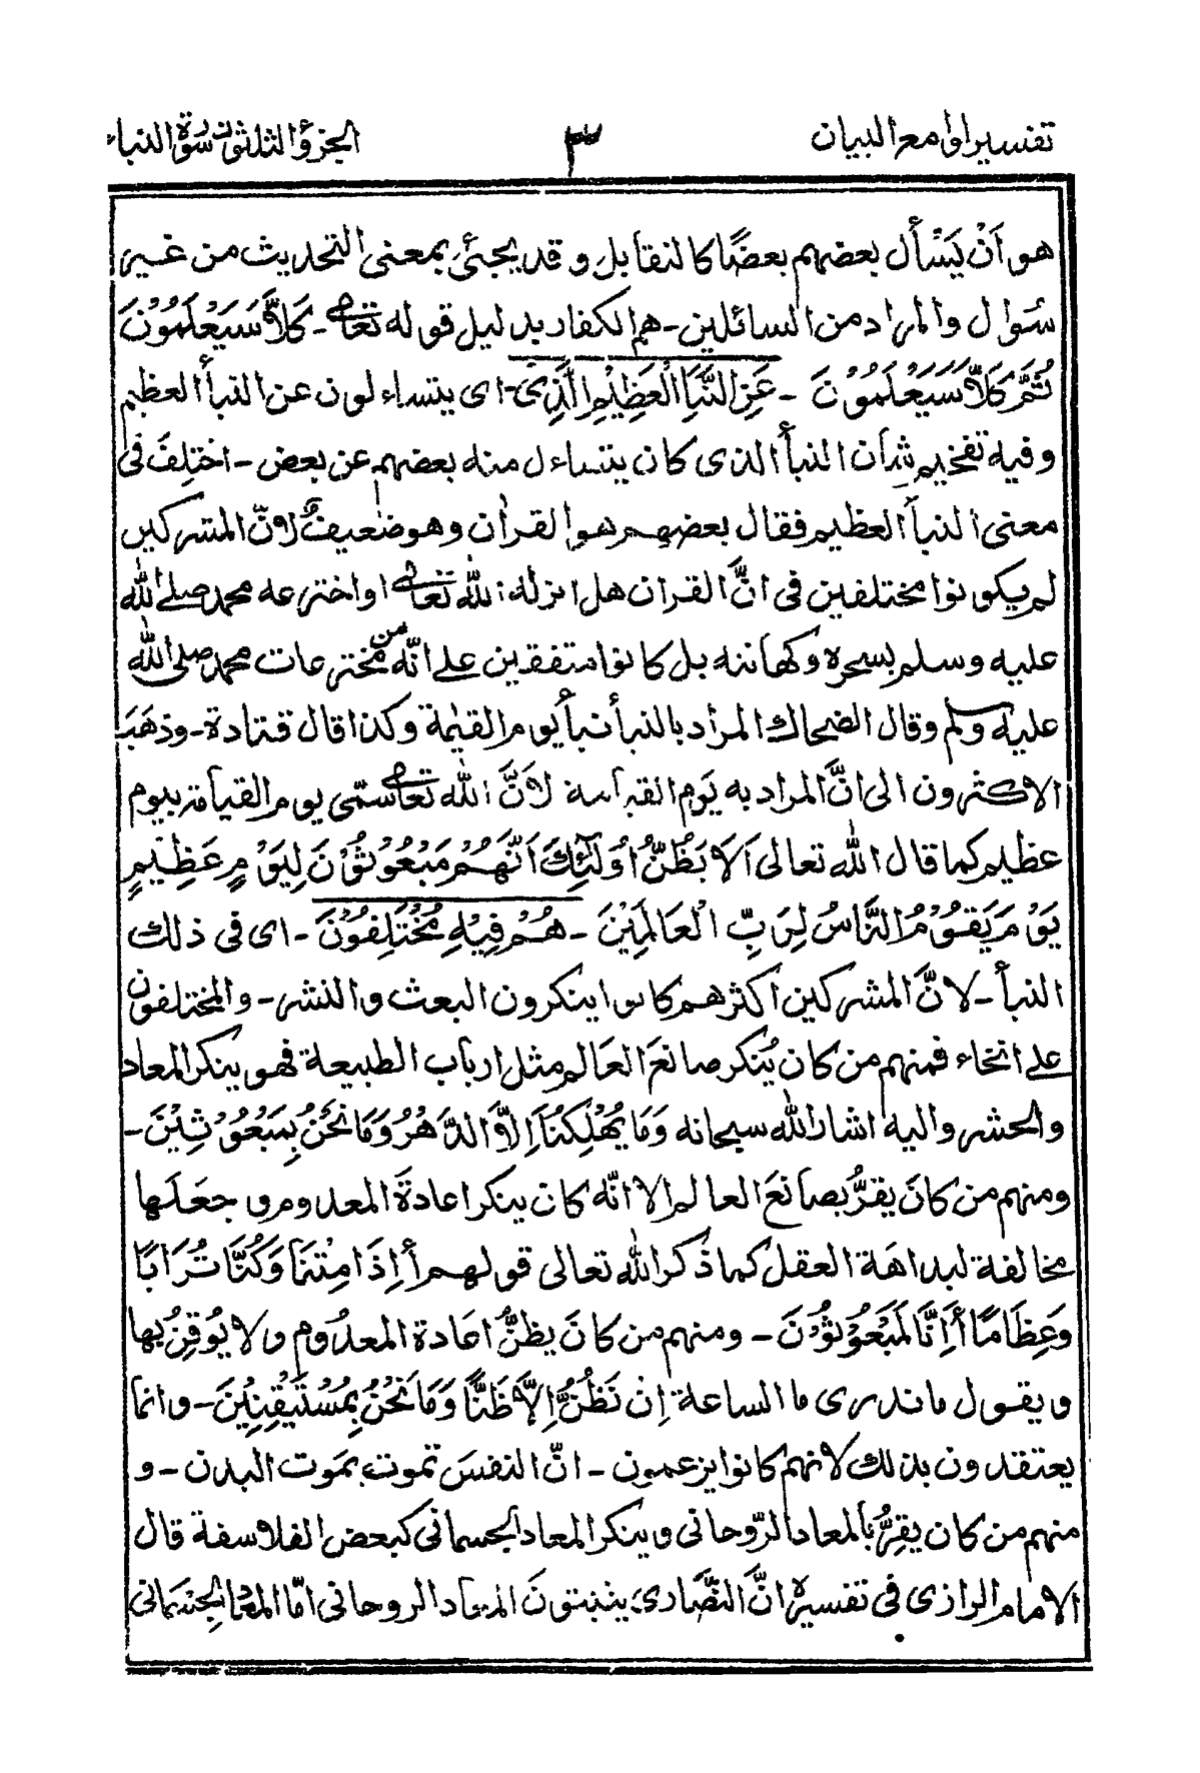 تفسير لوامع البيان ٣ الجزؤ الثلثون سورة النباء
هو اَنْ يَسْأل بعضهم بعضًا كالتقابل وقد يجئى بمعنى التحديث من غير
سُوال والمراد من السائلين - هم الكفار بدليل قوله تعالى - كَلاَّ سَيَعْلَمُوْنَ
ثُمَّ كَلاَّ سَيَعْلَمُوْنَ - عَنِ النَّبَاِ الْعَظِيْمِ الَّذِىْ - اى يتساءلون عن النبأ العظيم
وفيه تفخيم شأن النبأ الذى كان يتساءل منه بعضهم عن بعض - اختلِفَ فى
معنى النبأ العظيم فقال بعضهم هو القراٰن وهو ضعيفٌ لانّ المشركين
لم يكونوا مختلفين فى انَّ القران هل انزله الله تعالى او اخترعه محمد صلى الله
عليه وسلم بسحره وكهانته بل كانوا متفقين على انّه من مخترعات محمد صلى الله
عليه وسلم وقال الضحاك المراد بالنبأ نبأ يوم القيٰمة وكذا قال قتادة - وذهَبَ
الاكثرون الى انَّ المراد به يَوم القيامة لأنَّ الله تعالى سمّى يوم القيامة بيوم
عظيم كما قال الله تعالى اَلاَ يَظُنُّ اُولٰٓئِكَ اَنَّهُمْ مَبْعُوْثُوْنَ لِيَوْمٍ عَظِيْمٍ
يَوْمَ يَقُوْمُ النَّاسُ لِرَبِّ الْعَالَمِيْنَ - هُمْ فِيْهِ مُخْتَلِفُوْنَ - اى فى ذلك
النبأ - لانَّ المشركين اكثرهم كانوا ينكرون البعث والنشر - والمختلفون
على انحاء فمنهم من كان يُنكر صانعَ العالم مثل ارباب الطبيعة فهو ينكر المعاد
والحشر واليه اشار الله سبحانه وَمَا يُهْلِكُنَا اِلاَّ الدَّهْرُ وَمَا نَحْنُ بِمَبْعُوْثِيْنَ -
ومنهم من كانَ يقرُّ بصانعَ العالم الا انّه كان ينكر اعادةَ المعدوم و جعَلَها
مخالفة لبداهَة العقل كما ذكر الله تعالى قولهم أاِذَا مِتْنَا وَكُنَّا تُرَابًا
وَعِظَامًا أاَِنَّا لَمَبْعُوْثُوْنَ - ومنهم من كانَ يظنُّ اعادة المعدُوم ولا يُوقِنُ بها
ويقول ماندرى ما الساعة اِنْ نَظُنُّ اِلاَّ ظَنًّا وَمَا نَحْنُ بِمُسْتَيْقِنِيْنَ - وانما
يعتقدون بذلك لانهم كانوا يزعمون - انّ النفسَ تموت بمَوت البدن - و
منهم من كان يقِرُّ بالمعاد الرّوحانى وينكر المعاد الجسمانى كبعض الفلاسفة قال
الامام الرازى فى تفسيره انَّ النَّصَارى يثبتونَ المعاد الروحانى امّا المعاد الجسمانى